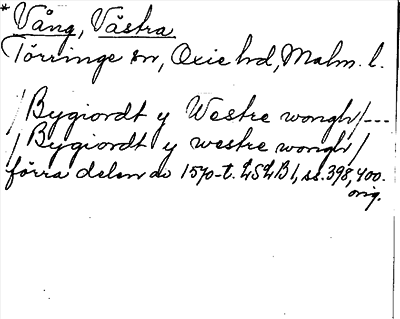 * Vång, Västra.
Törringe sn, Oxie hd, Malm. l.
/Bygiordt y Westre wongh/---
/Bygiordt y westre wongh/
förra delen av 1570-t. LSLB 1, ss. 398, 400.
orig.